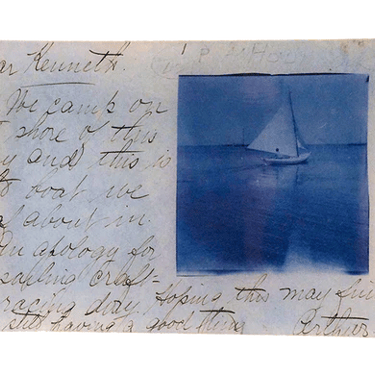 ar Kenneth.
We camp on
shore o this
y and this is
boat we
l about in.
An apology for
sailing craft-
racing day. Hoping this may fin
still having a good time Arthur.